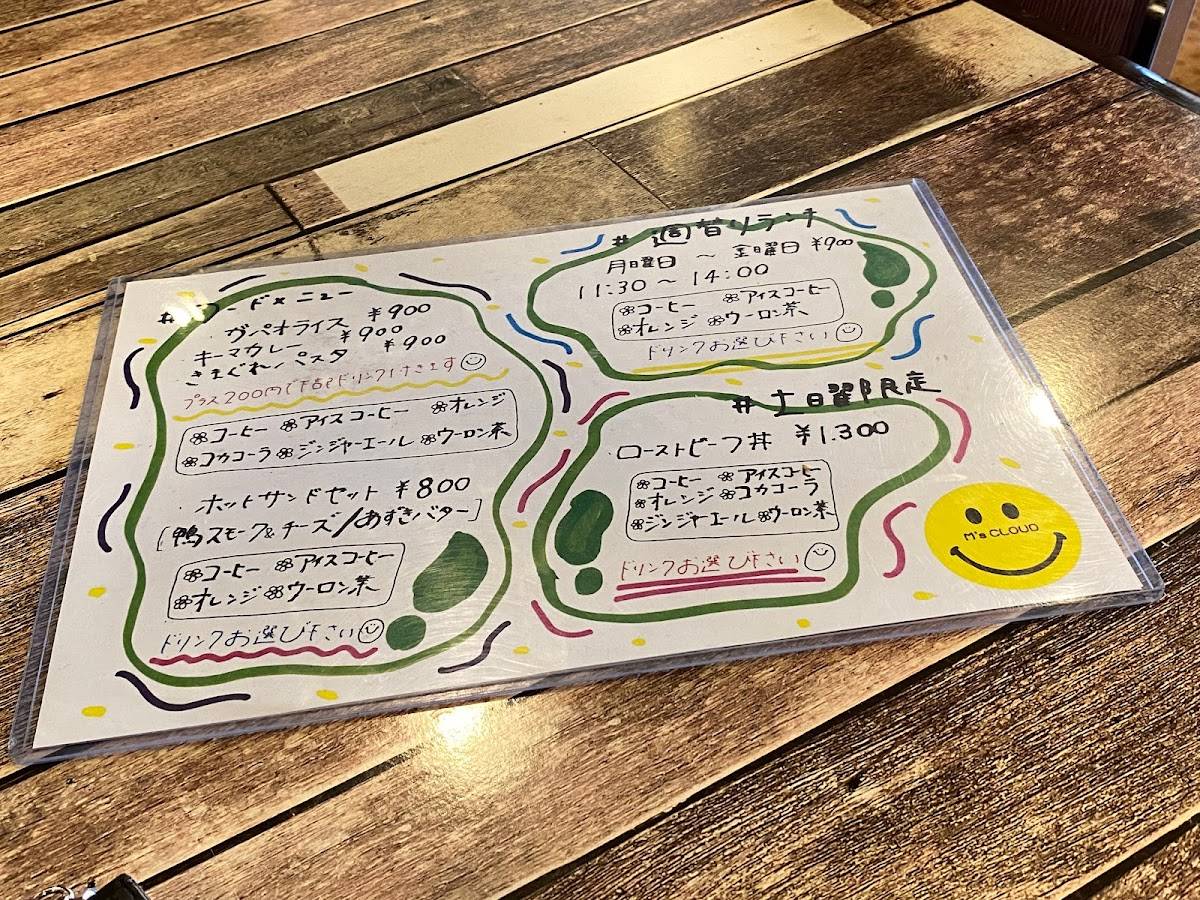 #フードメニュー
ガパオライス ¥900
キーマカレー ¥900
きまぐれパスタ ¥900
プラス200円で下記ドリンク付きます
コーヒー アイスコーヒー オレンジ
コカコーラ ジンジャーエール ウーロン茶
ホットサンドセット ¥800
[鴨スモーク&チーズ/あずきバター]
コーヒー アイスコーヒー
オレンジ ウーロン茶
ドリンクお選び下さい
#週替りランチ
月曜日 〜 金曜日 ¥900
11:30〜14:00
コーヒー アイスコーヒー
オレンジ ウーロン茶
ドリンクお選び下さい
#土日曜限定
ローストビーフ丼 ¥1.300
コーヒー アイスコーヒー
オレンジ コカコーラ
ジンジャーエール ウーロン茶
ドリンクお選び下さい
M's CLOUD